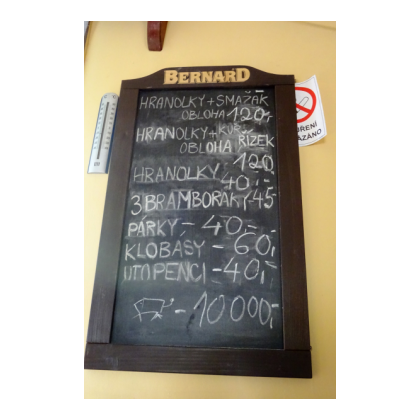 BERNARD
HRANOLKY + SMAŽÁK
OBLOHA 120,-
HRANOLKY + KUŘ.
OBLOHA ŘÍZEK
120
HRANOLKY
40,-
3 BRAMBORÁKY 45
PÁRKY - 40,-
KLOBASY - 60,-
UTOPENCI - 40,-
- 10 000,-